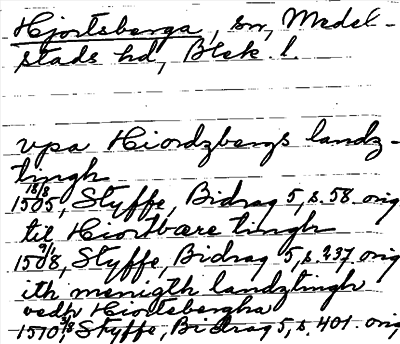 Hjortsberga, sn, Medel-
stads hd, Blek. l.
vpa Hiordzbergs landz-
tingh
18/8
1505, Styffe, Bidrag 5, s. 58. orig
til Hiortbære tingh
9/1
1508, Styffe, Bidrag 5, s. 237 orig
ith menigth landztingh
vedh Hiortsbergha
1510, 3/8 Styffe, Bidrag 5, s. 401. orig